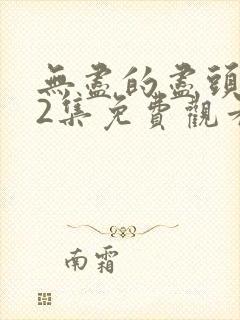 無盡的盡頭
2集免費觀看
南霜